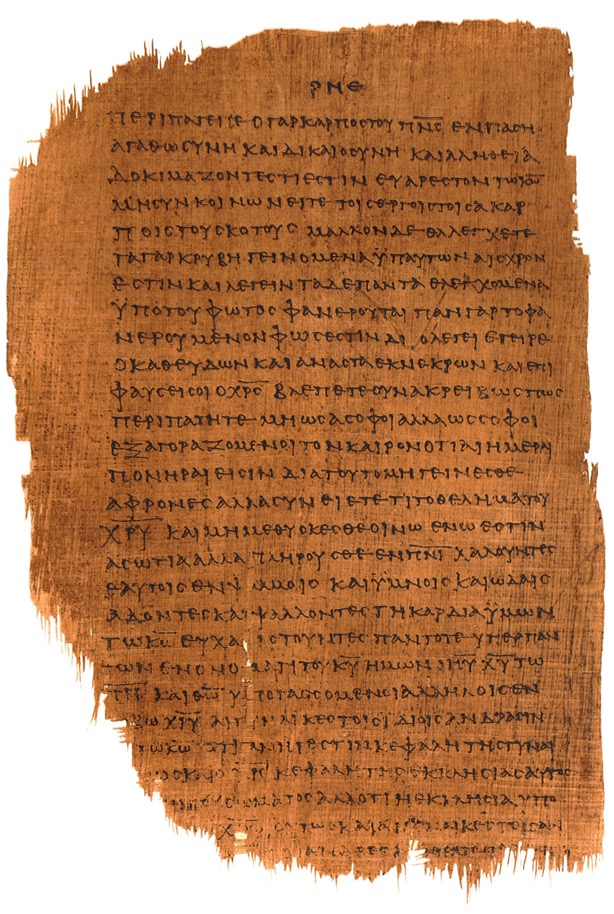 ΡΝΕ
ΠΕΡΙΠΑΤΕΙΤΕ Ο ΓΑΡ ΚΑΡΠΟϹ ΤΟΥ Π̅Ν̅Ϲ̅ ΕΝ ΠΑϹΗ
ΑΓΑΘΩϹΥΝΗ ΚΑΙ ΔΙΚΑΙΟϹΥΝΗ ΚΑΙ ΑΛΗΘΕΙΑ
ΔΟΚΙΜΑΖΟΝΤΕϹ ΤΙ ΕϹΤΙΝ ΕΥΑΡΕϹΤΟΝ ΤΩ Κ̅Ω̅
ΜΗ ϹΥΝΚΟΙΝΩΝΕΙΤΕ ΤΟΙϹ ΕΡΓΟΙϹ ΤΟΙϹ ΑΚΑΡ
ΠΟΙϹ ΤΟΥ ϹΚΟΤΟΥϹ ΜΑΛΛΟΝ ΔΕ ΕΛΕΓΧΕΤΕ
ΤΑ ΓΑΡ ΚΡΥΒΗ ΓΕΙΝΟΜΕΝΑ ΫΠ ΑΥΤΩΝ ΑΙϹΧΡΟΝ
ΕϹΤΙΝ ΚΑΙ ΛΕΓΕΙΝ ΤΑ ΔΕ ΠΑΝΤΑ ΕΛΕΓΧΟΜΕΝΑ
ΫΠΟ ΤΟΥ ΦΩΤΟϹ ΦΑΝΕΡΟΥΤΑΙ ΠΑΝ ΓΑΡ ΤΟ ΦΑ
ΝΕΡΟΥΜΕΝΟΝ ΦΩϹ ΕϹΤΙΝ ΔΙΟ ΛΕΓΕΙ ΕΓΕΙΡΕ
Ο ΚΑΘΕΥΔΩΝ ΚΑΙ ΑΝΑϹΤΑ ΕΚ ΝΕΚΡΩΝ ΚΑΙ ΕΠΙ
ΦΑΥϹΕΙ ϹΟΙ Ο Χ̅Ρ̅Ϲ̅ ΒΛΕΠΕΤΕ ΟΥΝ ΑΚΡΕΙΒΩϹ ΠΩϹ
ΠΕΡΙΠΑΤΗΤΕ ΜΗ ΩϹ ΑϹΟΦΟΙ ΑΛΛ ΩϹ ϹΟΦΟΙ
ΕΞΑΓΟΡΑΖΟΜΕΝΟΙ ΤΟΝ ΚΑΙΡΟΝ ΟΤΙ ΑΙ ΗΜΕΡΑΙ
ΠΟΝΗΡΑΙ ΕΙϹΙΝ ΔΙΑ ΤΟΥΤΟ ΜΗ ΓΕΙΝΕϹΘΕ
ΑΦΡΟΝΕϹ ΑΛΛΑ ϹΥΝΕΙΕΤΕ ΤΙ ΤΟ ΘΕΛΗΜΑ ΤΟΥ
Χ̅Ρ̅Υ̅ ΚΑΙ ΜΗ ΜΕΘΥϹΚΕϹΘΕ ΟΙΝΩ ΕΝ Ω ΕϹΤΙΝ
ΑϹΩΤΙΑ ΑΛΛΑ ΠΛΗΡΟΥϹΘΕ ΕΝ Π̅Ν̅Ι̅ ΛΑΛΟΥΝΤΕϹ
ΕΑΥΤΟΙϹ ΕΝ ΨΑΛΜΟΙϹ ΚΑΙ ΫΜΝΟΙϹ ΚΑΙ ΩΔΑΙϹ
ΑΔΟΝΤΕϹ ΚΑΙ ΨΑΛΛΟΝΤΕϹ ΤΗ ΚΑΡΔΙΑ ΫΜΩΝ
ΤΩ Κ̅Ω̅ ΕΥΧΑΡΙϹΤΟΥΝΤΕϹ ΠΑΝΤΟΤΕ ΥΠΕΡ ΠΑΝ
ΤΩΝ ΕΝ ΟΝΟΜΑΤΙ ΤΟΥ Κ̅Υ̅ ΗΜΩΝ Ι̅Η̅Υ̅ Χ̅Ρ̅Υ̅ ΤΩ
Π̅Ρ̅Ι̅ ΚΑΙ Θ̅Ω̅ ΥΠΟΤΑϹϹΟΜΕΝΟΙ ΑΛΛΗΛΟΙϹ ΕΝ
ΦΟΒΩ Χ̅Ρ̅Υ̅ ΑΙ ΓΥΝΑΙΚΕϹ ΤΟΙϹ ΙΔΙΟΙϹ ΑΝΔΡΑϹΙΝ
ΩϹ ΤΩ Κ̅Ω̅ ΟΤΙ ΑΝΗΡ ΕϹΤΙΝ ΚΕΦΑΛΗ ΤΗϹ ΓΥΝΑΙ
ΚΟϹ ΩϹ ΚΑΙ Ο Χ̅Ρ̅Ϲ̅ ΚΕΦΑΛΗ ΤΗϹ ΕΚΚΛΗϹΙΑϹ ΑΥΤΟϹ
ΤΟΥ ϹΩΜΑΤΟϹ ΑΛΛ ΟΤΙ Η ΕΚΛΗϹΙΑ ΥΠΟ
Χ̅Ρ̅Ω̅ ΟΥΤΩ ΚΑΙ ΑΙ ΓΥΝΑΙΚΕϹ ΤΟΙϹ ΑΝ